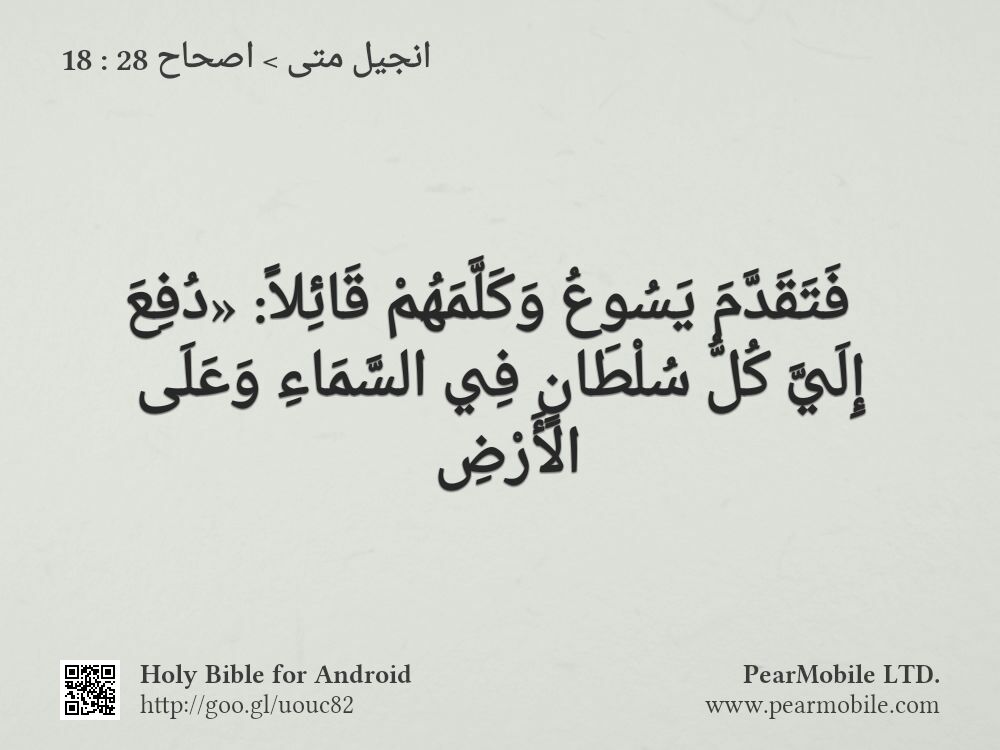 انجيل متى > اصحاح 28 : 18
فَتَقَدَّمَ يَسُوعُ وَكَلَّمَهُمْ قَائِلاً: «دُفِعَ
إِلَيَّ كُلُّ سُلْطَانٍ فِي السَّمَاءِ وَعَلَى
الأَرْضِ
Holy Bible for Android
http://goo.gl/uouc82
PearMobile LTD.
www.pearmobile.com